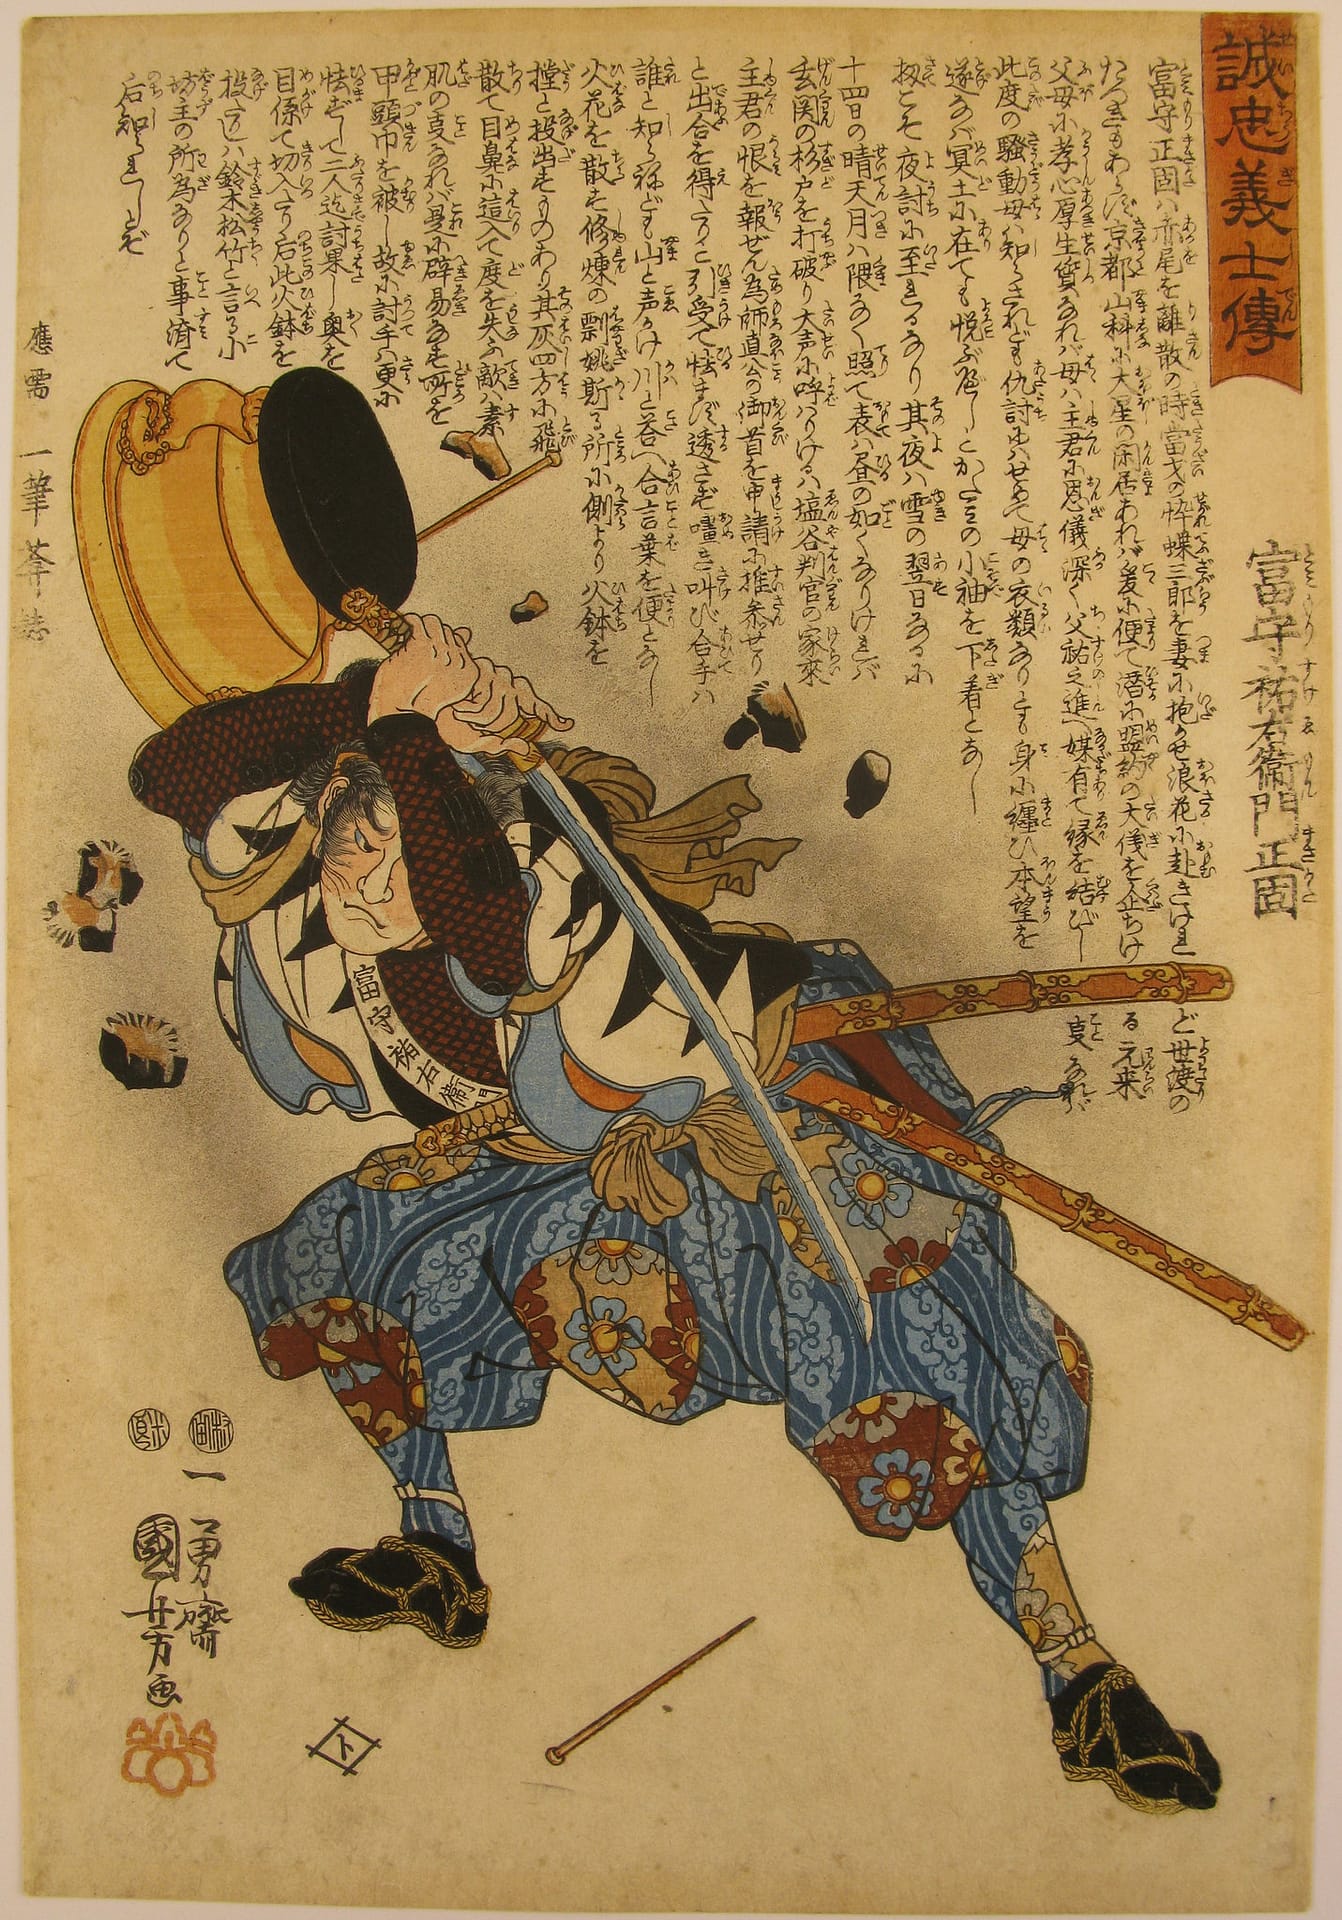 誠忠義士傳
せいちうぎしでん
富守祐右衛門正固
富守正固ハ赤尾を離散の時富戈の忰蝶三郎を妻に抱かせ浪花に赴きけれど世渡の
父母に孝心厚生質なれバ母ハ主君に恩儀深く父祐之進へ媒有て縁を結びし
此度の騒動母ハ知らされども仇討にハせめて母の衣類なりとも身に纏ひ本望を
遂なバ冥土に在ても悦ぶべしとかたミの小袖を下着となし
扨こそ夜討に至るなり其夜ハ雪の翌日なるに
十四日の晴天月ハ隈なく照て表ハ昼の如くなりけれバ
玄関の杉戸を打破り大声に呼ハりけるハ塩谷判官の家来
主君の恨を報ぜん為師直公の御首を申請に推参せり
と出合を得たりと引受て怯まず透さず嚍き叫び合手ハ
誰と知らねども山と声かけ川と答へ合言葉を便となし
火花を散す修煉の剽姚斯る所に側より火鉢を
撑と投出すものあり其灰四方に飛
散て目鼻に這入て度を失ふ敵ハ素
肌の事なれバ是に辟易なす所を
甲頭巾を被し故に討手ハ更に
怯ずして二人迄討果し奥を
目係て切入たり后此火鉢を
投たしハ鈴木松竹と言る小
坊主の所為なりと事済て
后知られしとぞ
應需
一筆菴誌
富守祐右衛門
村田
米良
一勇齋
國芳画
ト